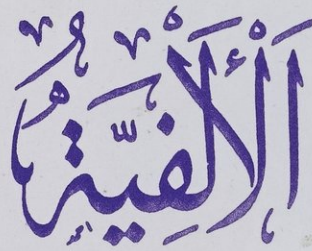 الْأَلْفِيَّةُ